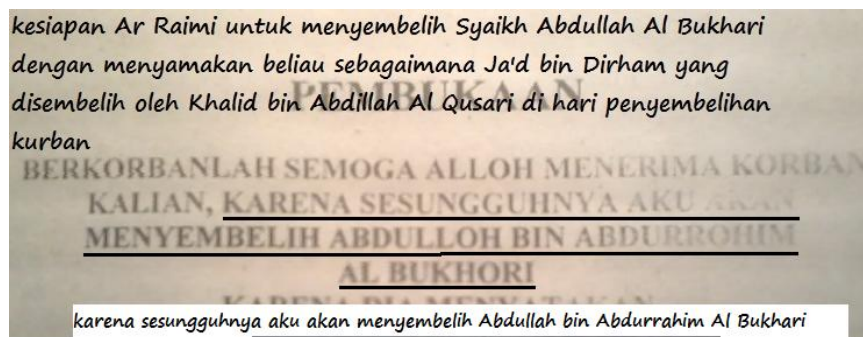 kesiapan Ar Raimi untuk menyembelih Syaikh Abdullah Al Bukhari
dengan menyamakan beliau sebagaimana Ja'd bin Dirham yang
disembelih oleh Khalid bin Abdillah Al Qusari di hari penyembelihan
kurban
PEMBUKAAN
BERKORBANLAH SEMOGA ALLOH MENERIMA KORBAN
KALIAN, KARENA SESUNGGUHNYA AKU AKAN
MENYEMBELIH ABDULLOH BIN ABDURROHIM
AL BUKHORI
KARENA DIA MENYATAKAN
karena sesungguhnya aku akan menyembelih Abdullah bin Abdurrahim Al Bukhari